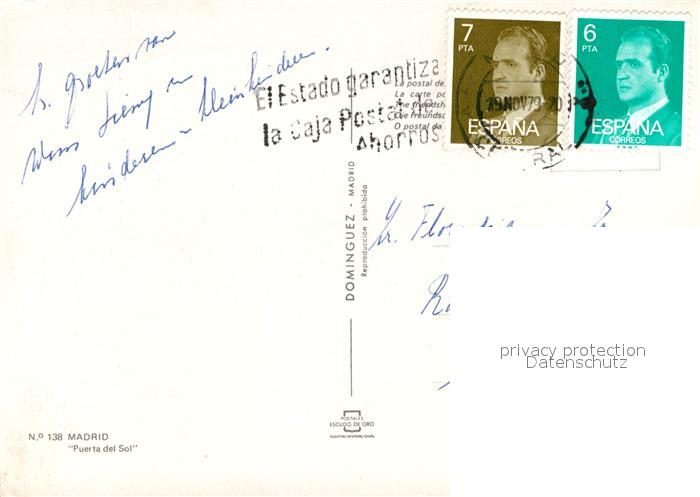 groeten van
kinderen kleinkinderen.
El Estado garantiza
la Caja Postal de
Ahorros
La postal de
La carte po
The friendsh
Die Freundsc
O postal da
7
PTA
ESPAÑA
CORREOS
6
PTA
ESPAÑA
CORREOS
29 NOV 79
DOMINGUEZ - MADRID
Reproducción prohibida
privacy protection
Datenschutz
POSTALES
ESCUDO DE ORO
REGISTRO INTERNACIONAL
N.º 138 MADRID
"Puerta del Sol"